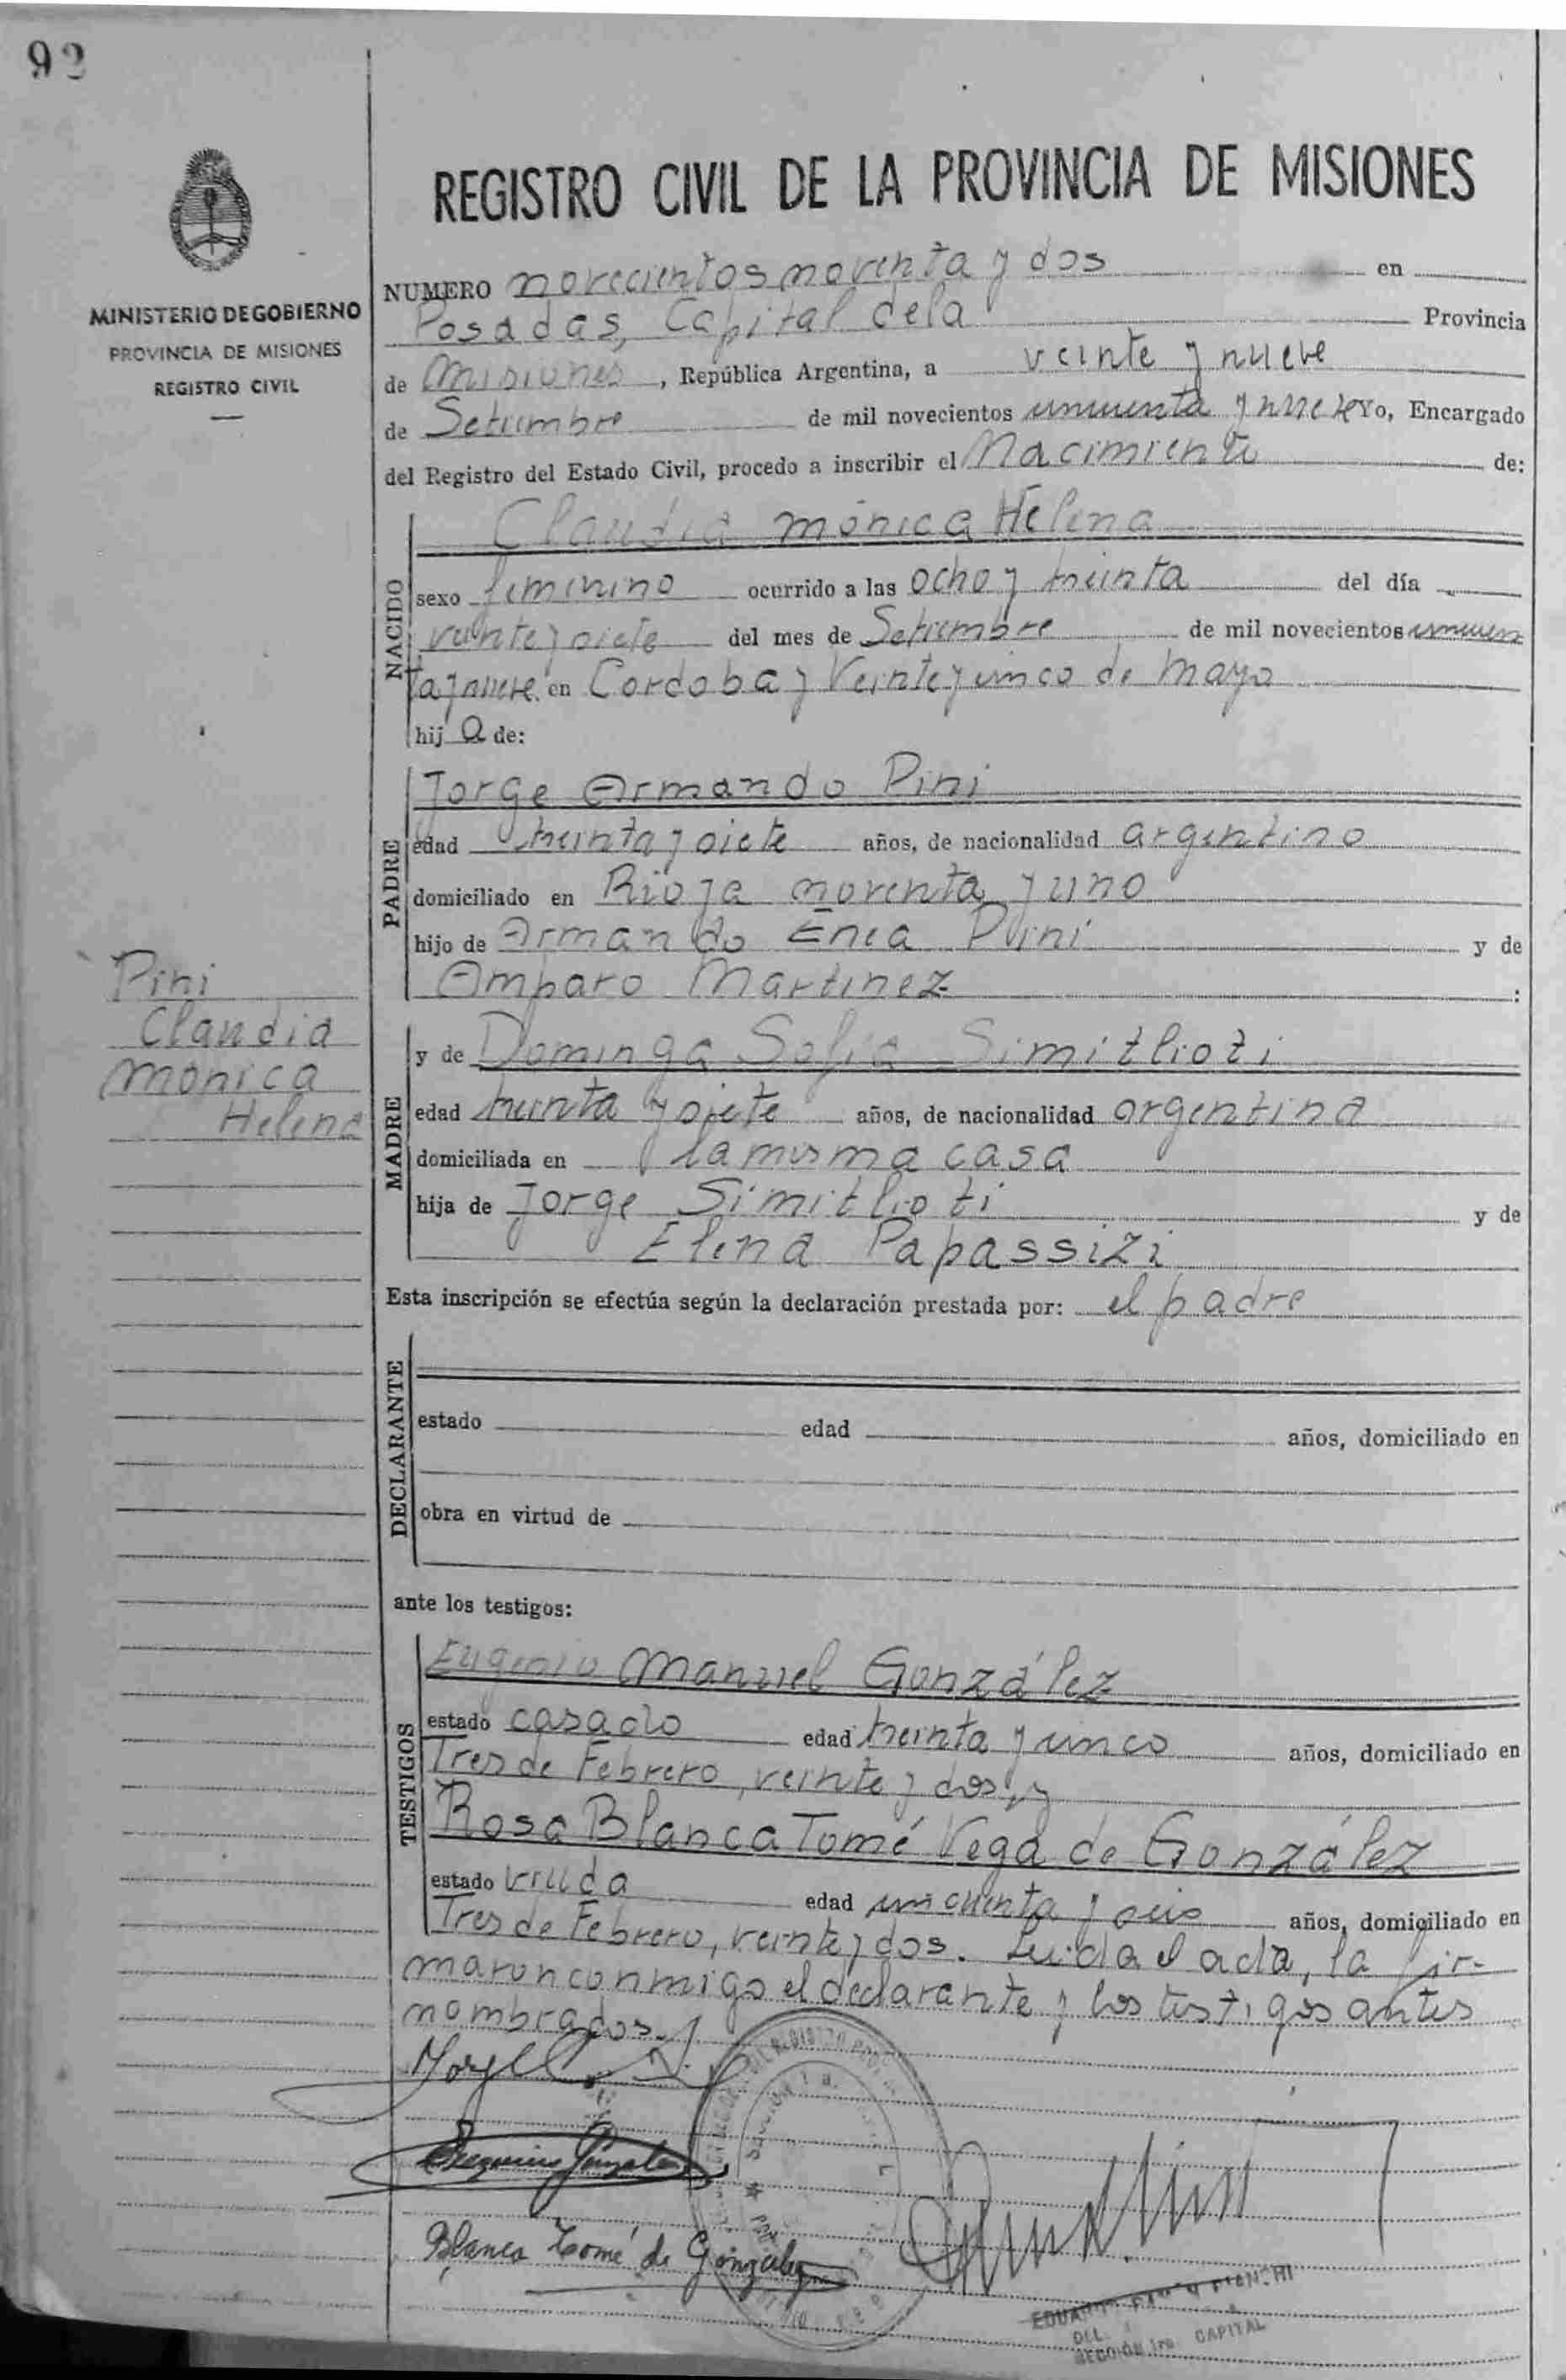 92
MINISTERIO DE GOBIERNO
PROVINCIA DE MISIONES
REGISTRO CIVIL
REGISTRO CIVIL DE LA PROVINCIA DE MISIONES
NUMERO novecientos noventa y dos en
Posadas, Capital dela Provincia
de Misiones, República Argentina, a veinte y nueve
de Setiembre de mil novecientos cincuenta y nueve Yo, Encargado
del Registro del Estado Civil, procedo a inscribir el Nacimiento de:
NACIDO
Claudia Mónica Helena
sexo femenino ocurrido a las ocho y treinta del día
veinte y siete del mes de Setiembre de mil novecientos cincuen
ta y nueve en Cordoba y Veinte y cinco de Mayo
hij a de:
PADRE
Jorge Armando Pini
edad treinta y siete años, de nacionalidad argentino
domiciliado en Rioja noventa y uno
hijo de Armando Enea Pini y de
Amparo Martinez :
Pini
Claudia
Mónica
Helena
MADRE
y de Dominga Sofia Simitlioti
edad treinta y siete años, de nacionalidad argentina
domiciliada en la misma casa
hija de Jorge Simitlioti y de
Elena Papassizi
Esta inscripción se efectúa según la declaración prestada por: el padre
DECLARANTE
estado edad años, domiciliado en
obra en virtud de
ante los testigos:
TESTIGOS
Eugenio Manuel González
estado casado edad treinta y cinco años, domiciliado en
Tres de Febrero, veinte y dos, y
Rosa Blanca Tomé Vega de González
estado viuda edad cincuenta y seis años, domiciliado en
Tres de Febrero, veinte y dos. Leida el acta, la fir-
maron conmigo el declarante y los testigos antes
nombrados.
Blanca Tomé de González
SECCIÓN 1ra CAPITAL